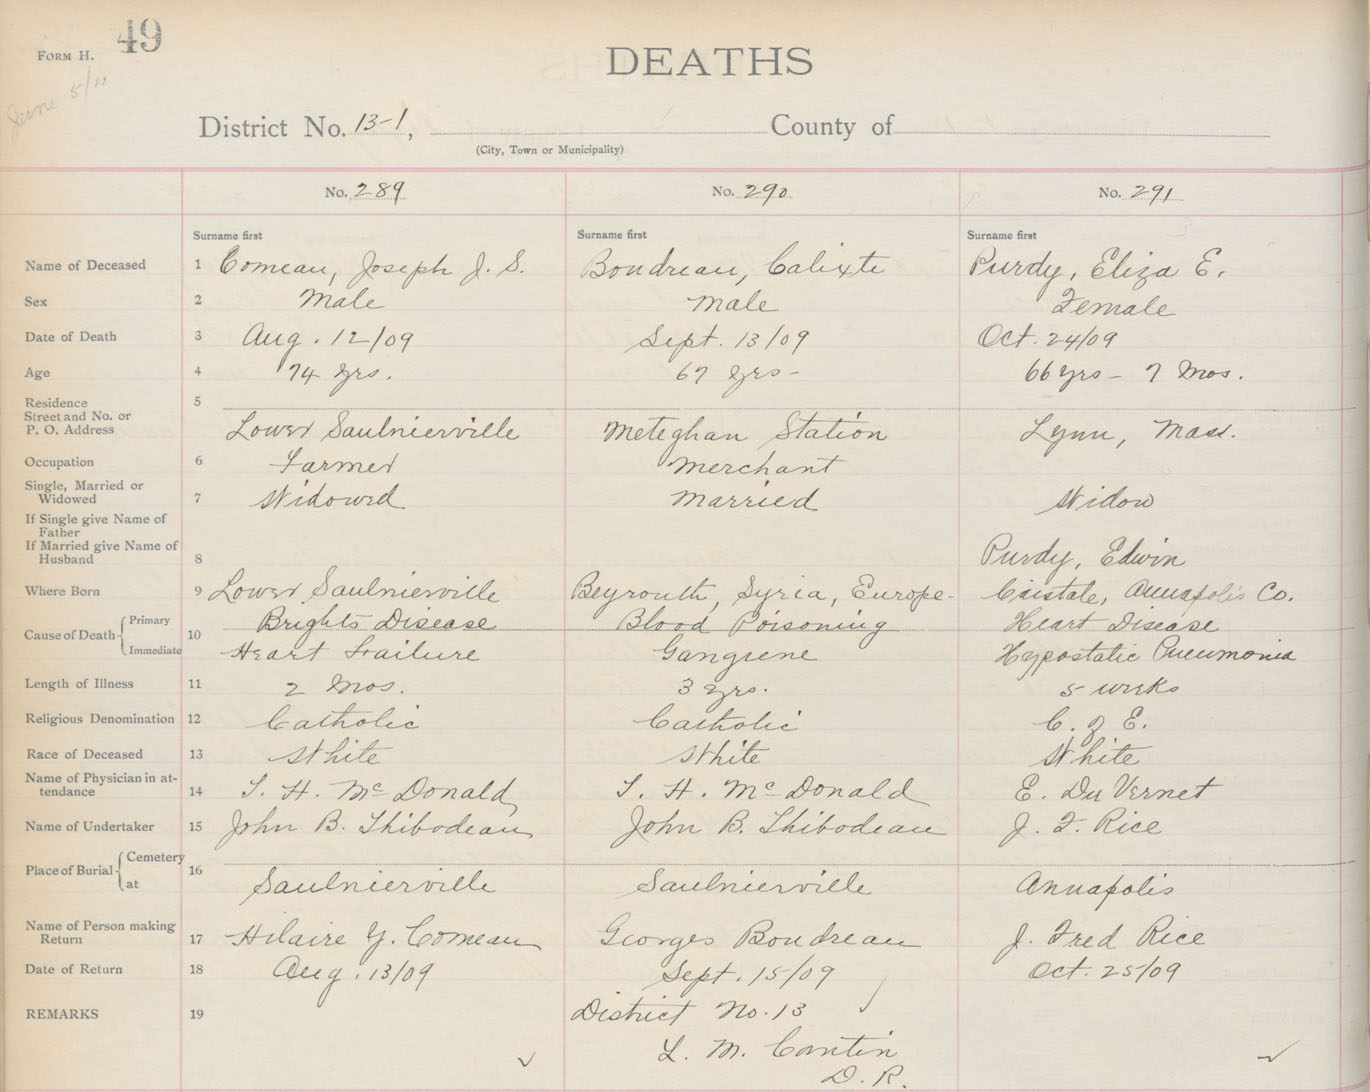 FORM H. 49
June 5/11
DEATHS
District No. 13-1, County of
(City, Town or Municipality)
No. 289 No. 290 No. 291
Surname first Surname first Surname first
Name of Deceased 1 Comeau, Joseph J. S. Boudreau, Calixte Purdy, Eliza E.
Sex 2 Male Male Female
Date of Death 3 Aug. 12/09 Sept. 13/09 Oct. 24/09
Age 4 74 yrs. 67 yrs- 66 yrs - 7 Mos.
Residence 5
Street and No. or
P. O. Address Lower Saulnierville Meteghan Station Lynn, Mass.
Occupation 6 Farmer Merchant
Single, Married or
Widowed 7 Widowed Married Widow
If Single give Name of
Father
If Married give Name of
Husband 8 Purdy, Edwin
Where Born 9 Lower Saulnierville Beyrouth, Syria, Europe- Annapolis Co.
Cause of Death Primary 10 Brights Disease Blood Poisoning Heart Disease
Immediate Heart Failure Gangrene Hypostatic Pneumonia
Length of Illness 11 2 Mos. 3 yrs. 5 weeks
Religious Denomination 12 Catholic Catholic C. of E.
Race of Deceased 13 White White White
Name of Physician in at-
tendance 14 T. H. McDonald T. H. McDonald E. Du Vernet
Name of Undertaker 15 John B. Thibodeau John B. Thibodeau J. F. Rice
Place of Burial Cemetery 16
at Saulnierville Saulnierville Annapolis
Name of Person making
Return 17 Hilaire Y. Comeau Georges Boudreau J. Fred Rice
Date of Return 18 Aug. 13/09 Sept. 15/09 Oct. 25/09
REMARKS 19 District No. 13
L. M. Cantin
D. R.